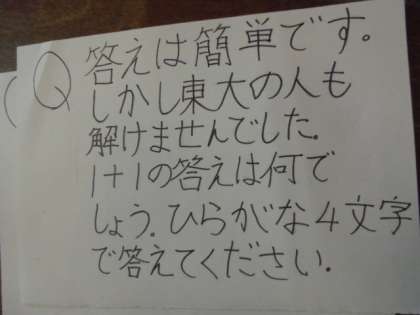 Q 答えは簡単です。
しかし東大の人も
解けませんでした。
1+1の答えは何で
しょう。ひらがな4文字
で答えてください.